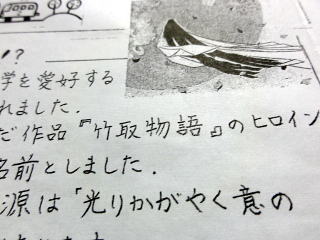 ？
学を愛好する
れました．
だ作品『竹取物語』のヒロイン
名前としました．
源は「光りかがやく意の